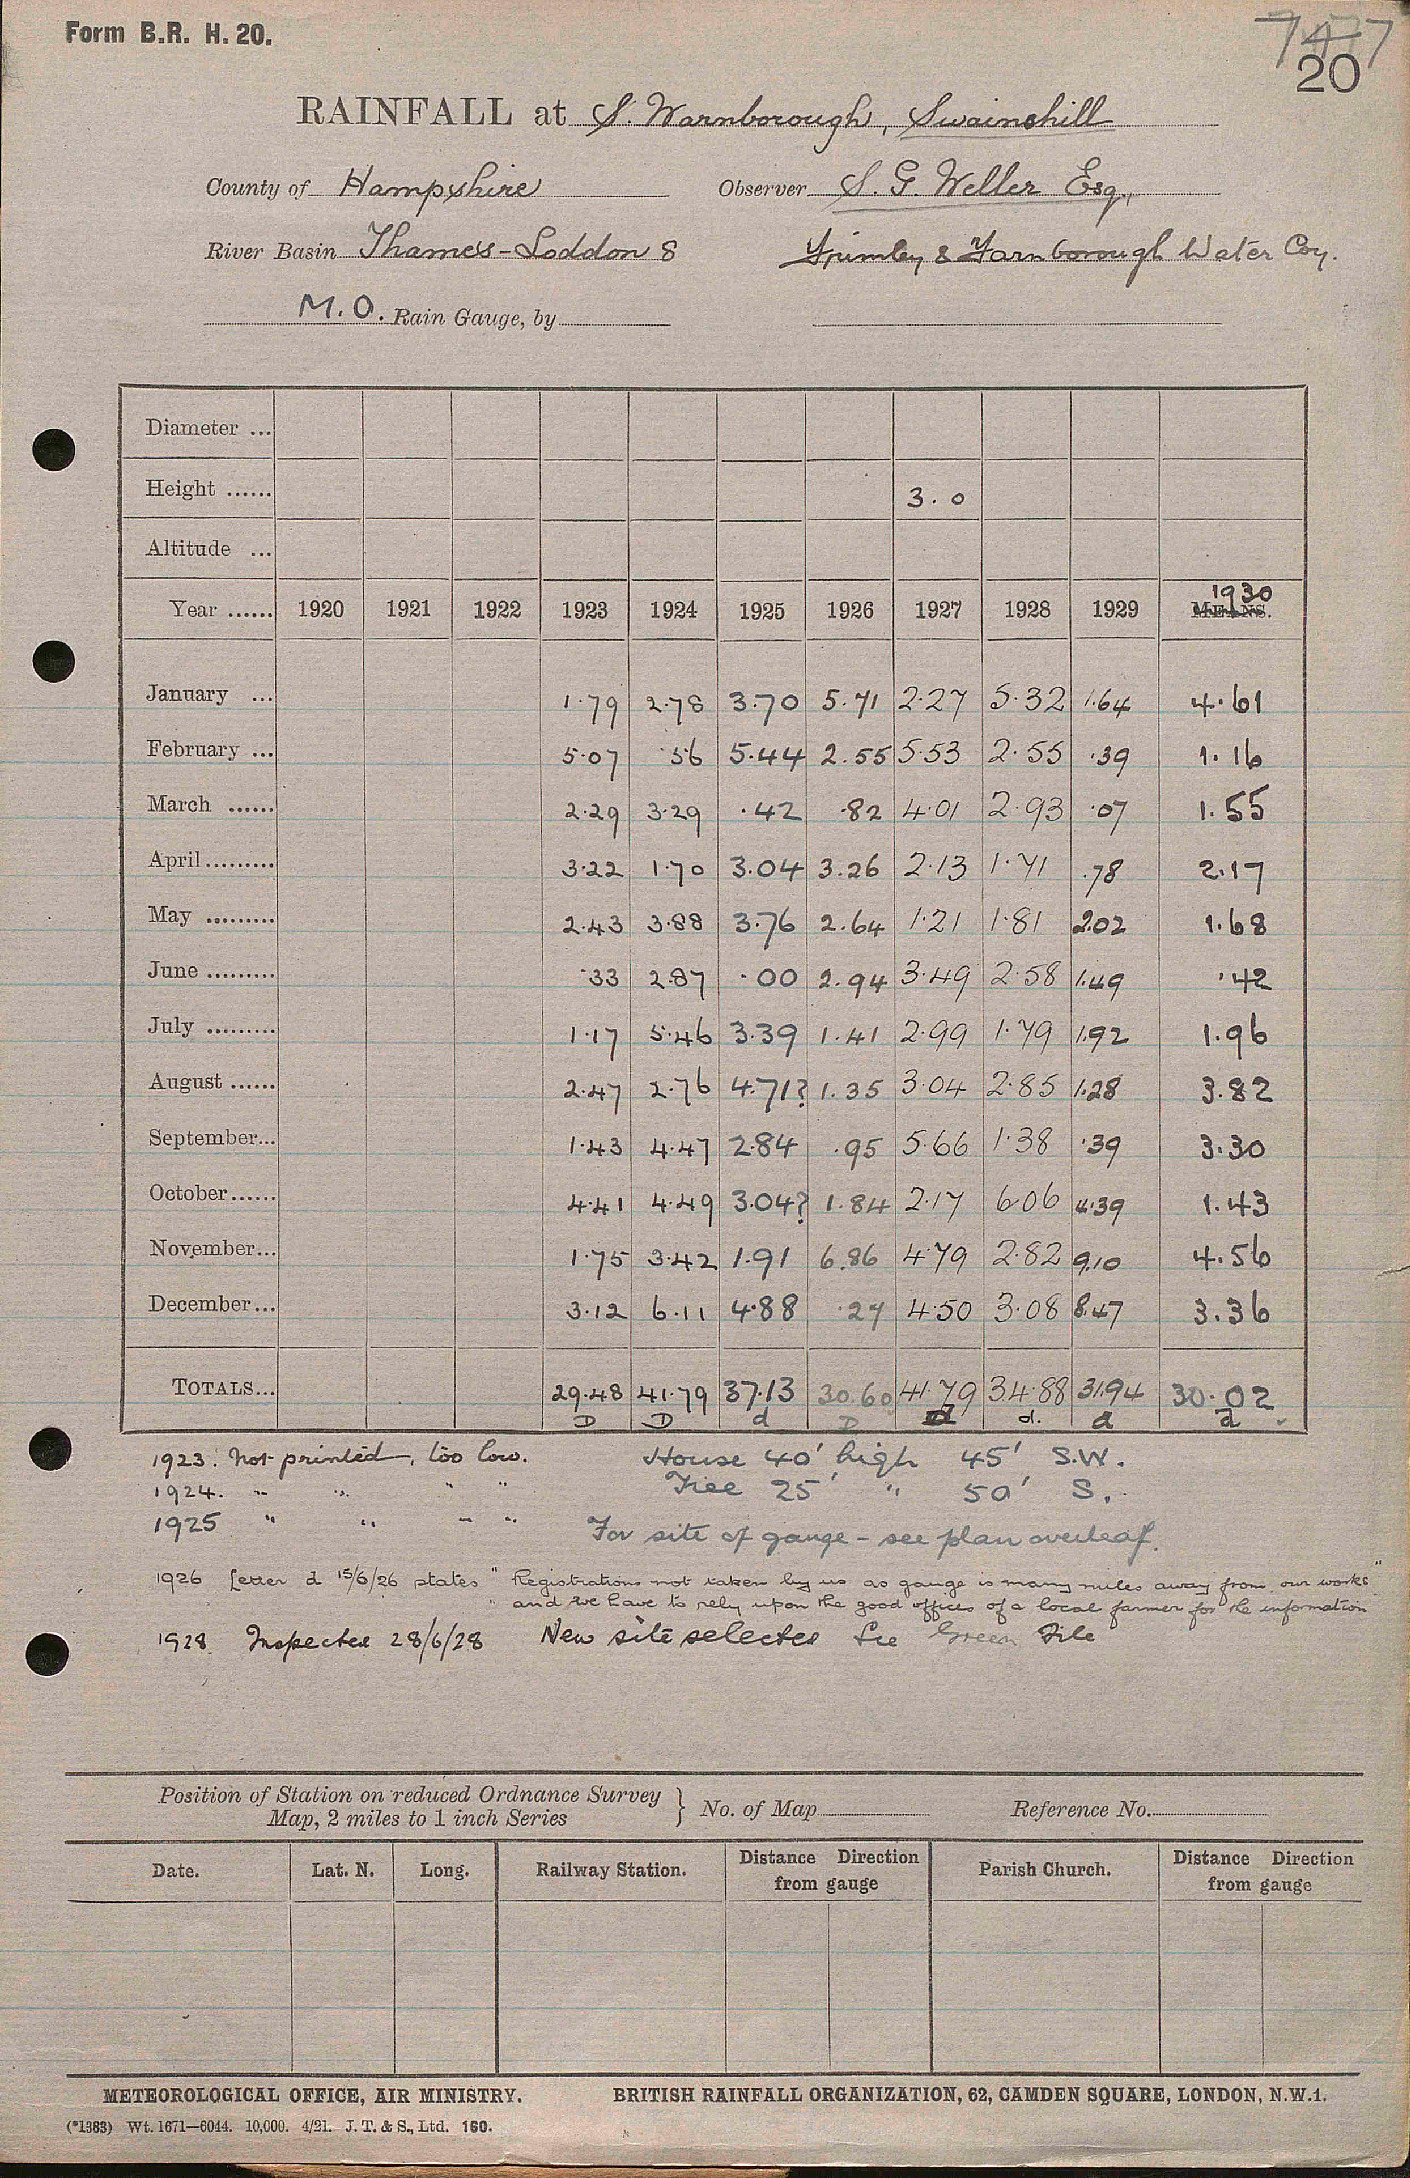 Form B.R. H. 20.
747
20
RAINFALL at S. Warnborough, Swainshill
County of Hampshire Observer S. G. Weller Esq,
River Basin Thames - Loddon 8 Frimley & Farnborough Water Coy.
M.O. Rain Gauge, by
Diameter ...
Height ...... 3.0
Altitude ...
1930
Year ...... 1920 1921 1922 1923 1924 1925 1926 1927 1928 1929 MEANS.
January ... 1.79 2.78 3.70 5.71 2.27 5.32 1.64 4.61
February ... 5.07 .56 5.44 2.55 5.53 2.55 .39 1.16
March ...... 2.29 3.29 .42 .82 4.01 2.93 .07 1.55
April ......... 3.22 1.70 3.04 3.26 2.13 1.71 .78 2.17
May ......... 2.43 3.88 3.76 2.64 1.21 1.81 2.02 1.68
June ......... .33 2.87 .00 2.94 3.49 2.58 1.49 .42
July ......... 1.17 5.46 3.39 1.41 2.99 1.79 1.92 1.96
August ...... 2.47 2.76 4.71? 1.35 3.04 2.85 1.28 3.82
September... 1.43 4.47 2.84 .95 5.66 1.38 .39 3.30
October...... 4.41 4.49 3.04? 1.84 2.17 6.06 4.39 1.43
November... 1.75 3.42 1.91 6.86 4.79 2.82 9.10 4.56
December... 3.12 6.11 4.88 .27 4.50 3.08 8.47 3.36
TOTALS... 29.48 41.79 37.13 30.60 41.79 34.88 31.94 30.02
D D d D d d. d d
1923. Not printed, too low. House 40' high 45' S.W.
1924. " " " " Tree 25' " 50' S.
1925 " " " " For site of gauge - see plan overleaf.
1926 Letter d 15/6/26 states "Registrations not taken by us as gauge is many miles away from our works
" and we have to rely upon the good offices of a local farmer for the information"
1928 Inspected 28/6/28 New site selected See Green File
Position of Station on reduced Ordnance Survey
Map, 2 miles to 1 inch Series } No. of Map Reference No.
Date. Lat. N. Long. Railway Station. Distance Direction from gauge Parish Church. Distance Direction from gauge
METEOROLOGICAL OFFICE, AIR MINISTRY. BRITISH RAINFALL ORGANIZATION, 62, CAMDEN SQUARE, LONDON, N.W.1.
(*1383) Wt. 1671—6044. 10,000. 4/21. J. T. & S., Ltd. 160.